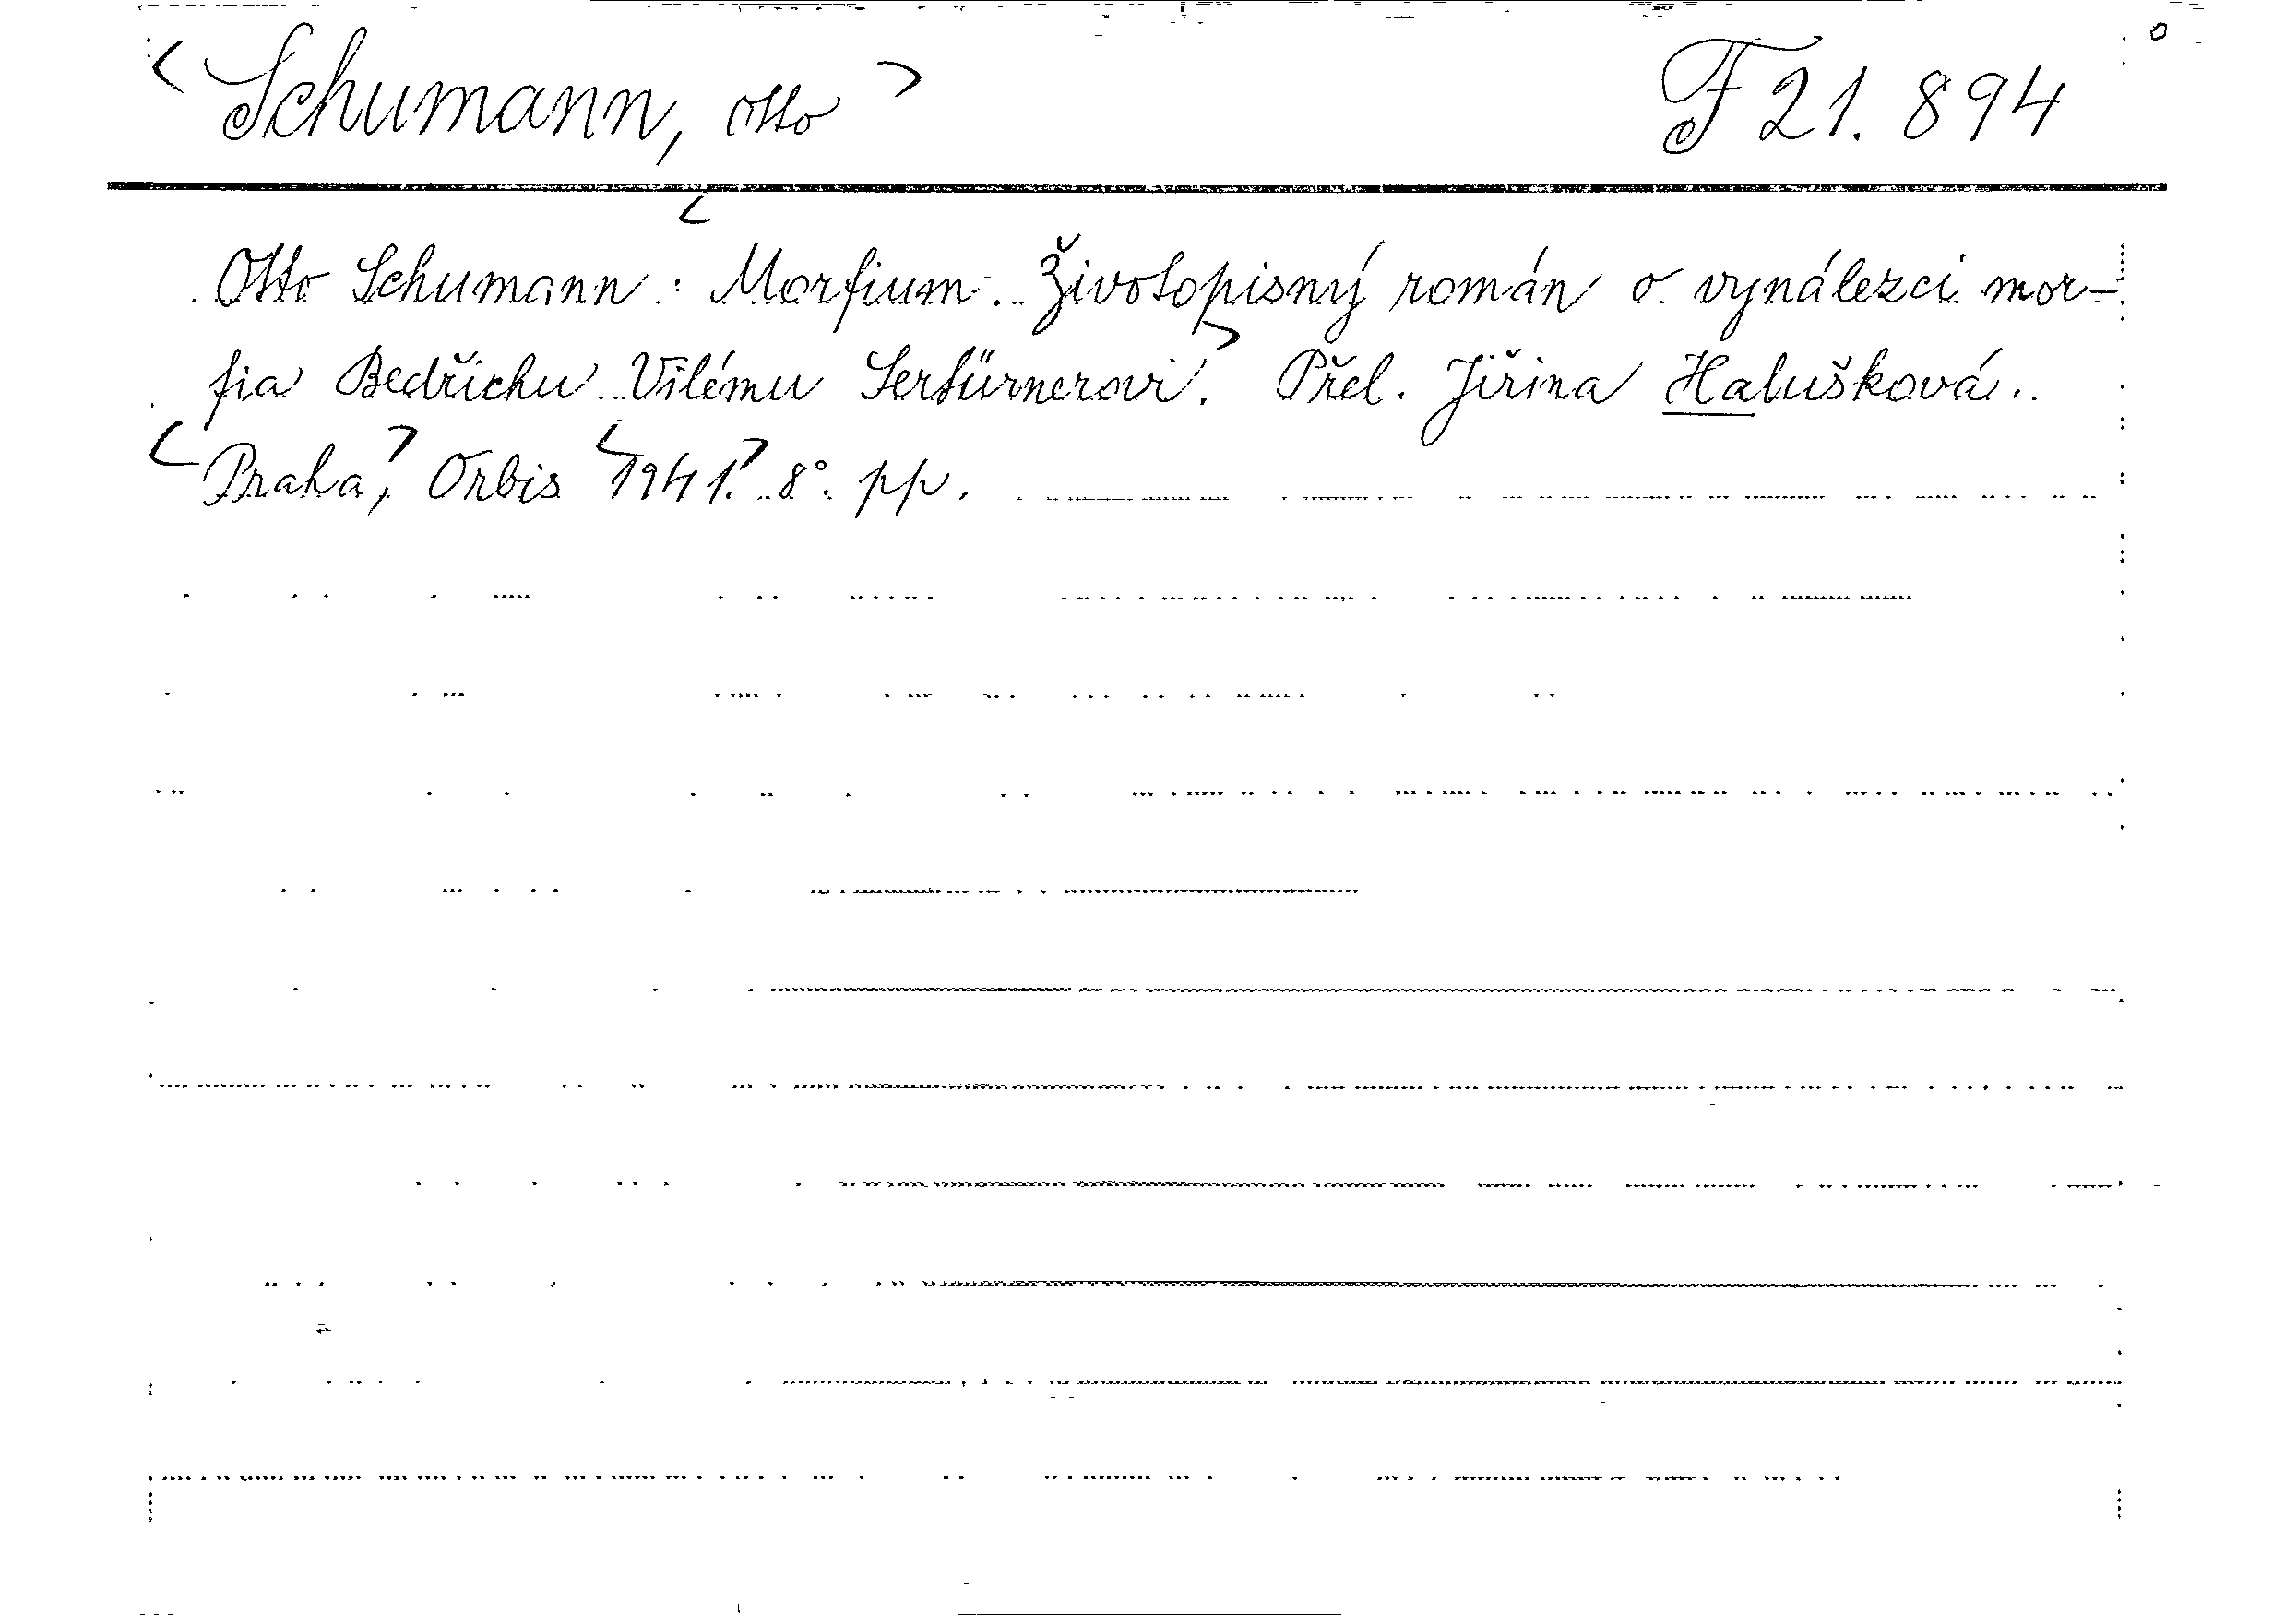 <Schumann, Otto> F 21.894
Otto Schumann: <Morfium. Životopisný román o vynálezci mor-
fia Bedřichu Vilému Sertürnerovi.> Přel. Jiřina Halušková.
<Praha,> Orbis <1941.> 8°. pp.